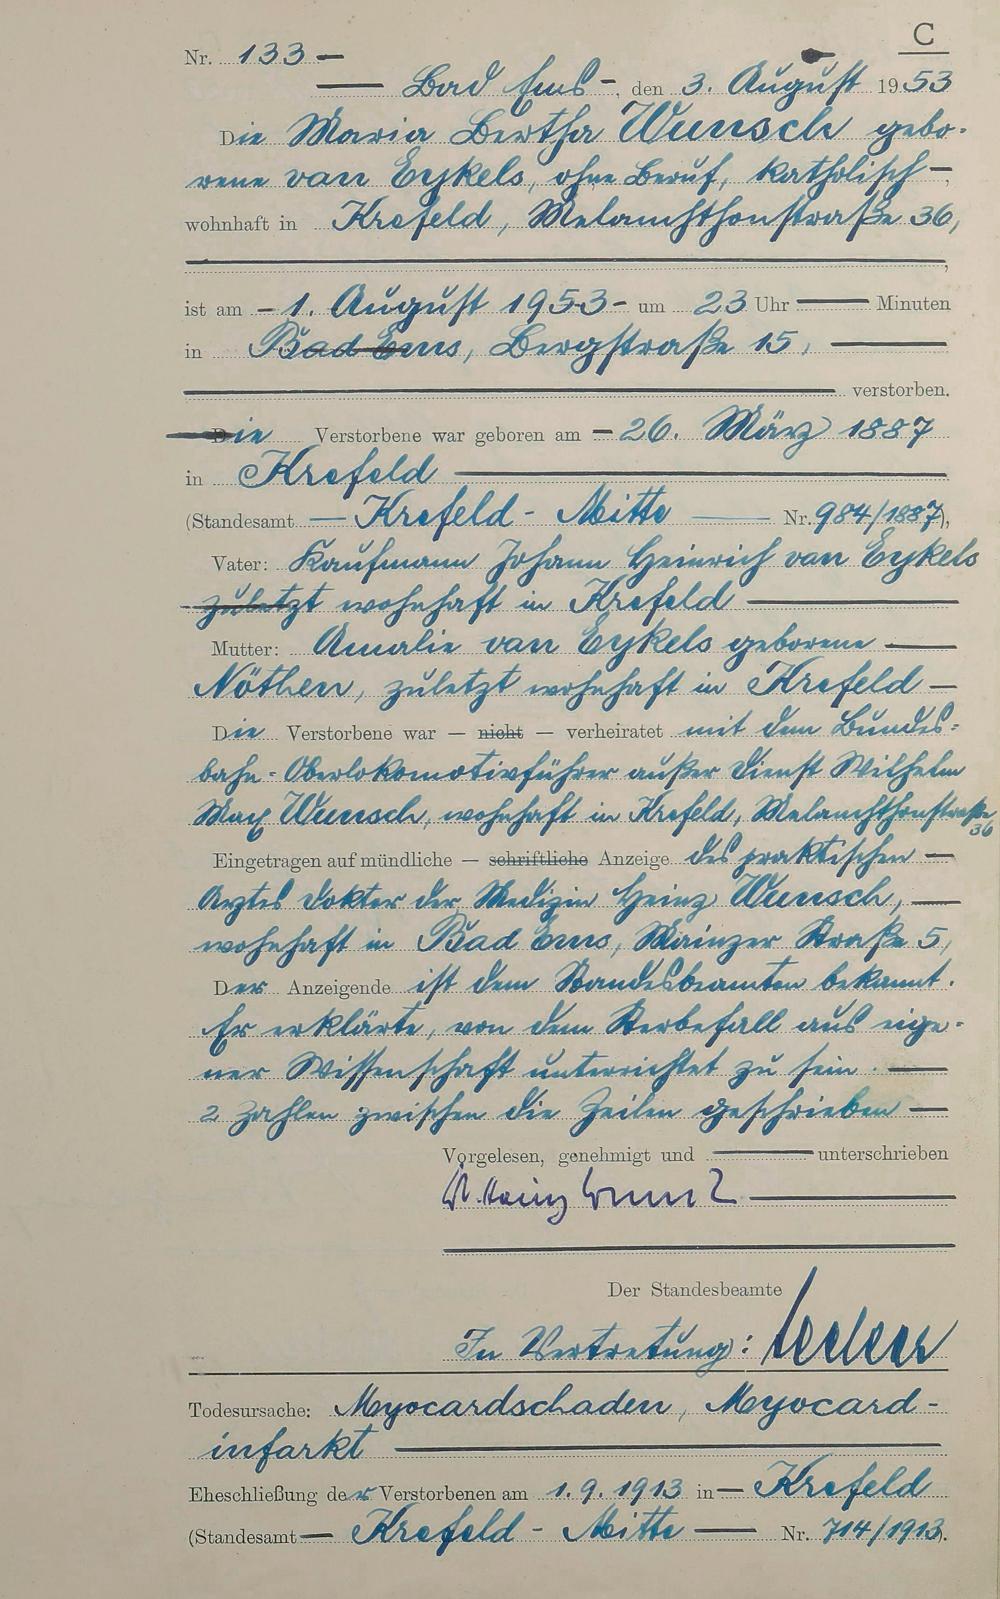 C
Nr. 133 —
— Bad Ems -, den 3. August 1953
Die Maria Bertha Wunsch gebo-
rene van Eykels, ohne Beruf, katholisch —,
wohnhaft in Krefeld, Melanchthonstraße 36,
ist am - 1. August 1953 - um 23 Uhr — Minuten
in Bad Ems, Bergstraße 15, —
— verstorben.
Die Verstorbene war geboren am - 26. März 1887
in Krefeld —
(Standesamt — Krefeld - Mitte — Nr. 984/1887),
Vater: Kaufmann Johann Heinrich van Eykels
zuletzt wohnhaft in Krefeld —
Mutter: Amalie van Eykels geborene —
Nöthen, zuletzt wohnhaft in Krefeld —
Die Verstorbene war — nicht — verheiratet mit dem Bundes-
bahn-Oberlokomotivführer außer Dienst Wilhelm
Max Wunsch, wohnhaft in Krefeld, Melanchthonstraße
36
Eingetragen auf mündliche — schriftliche Anzeige des praktischen —
Arztes Doktor der Medizin Heinz Wunsch, —
wohnhaft in Bad Ems, Mainzer Straße 5,
Der Anzeigende ist dem Standesbeamten bekannt.
Er erklärte, von dem Sterbefall aus eige-
ner Wissenschaft unterrichtet zu sein. —
2 Zahlen zwischen die Zeilen geschrieben —
Vorgelesen, genehmigt und — unterschrieben
Dr. Heinz Wunsch —
Der Standesbeamte
In Vertretung:
Todesursache: Myocardschaden, Myocard-
infarkt —
Eheschließung der Verstorbenen am 1.9.1913 in — Krefeld
(Standesamt — Krefeld - Mitte — Nr. 714/1913).